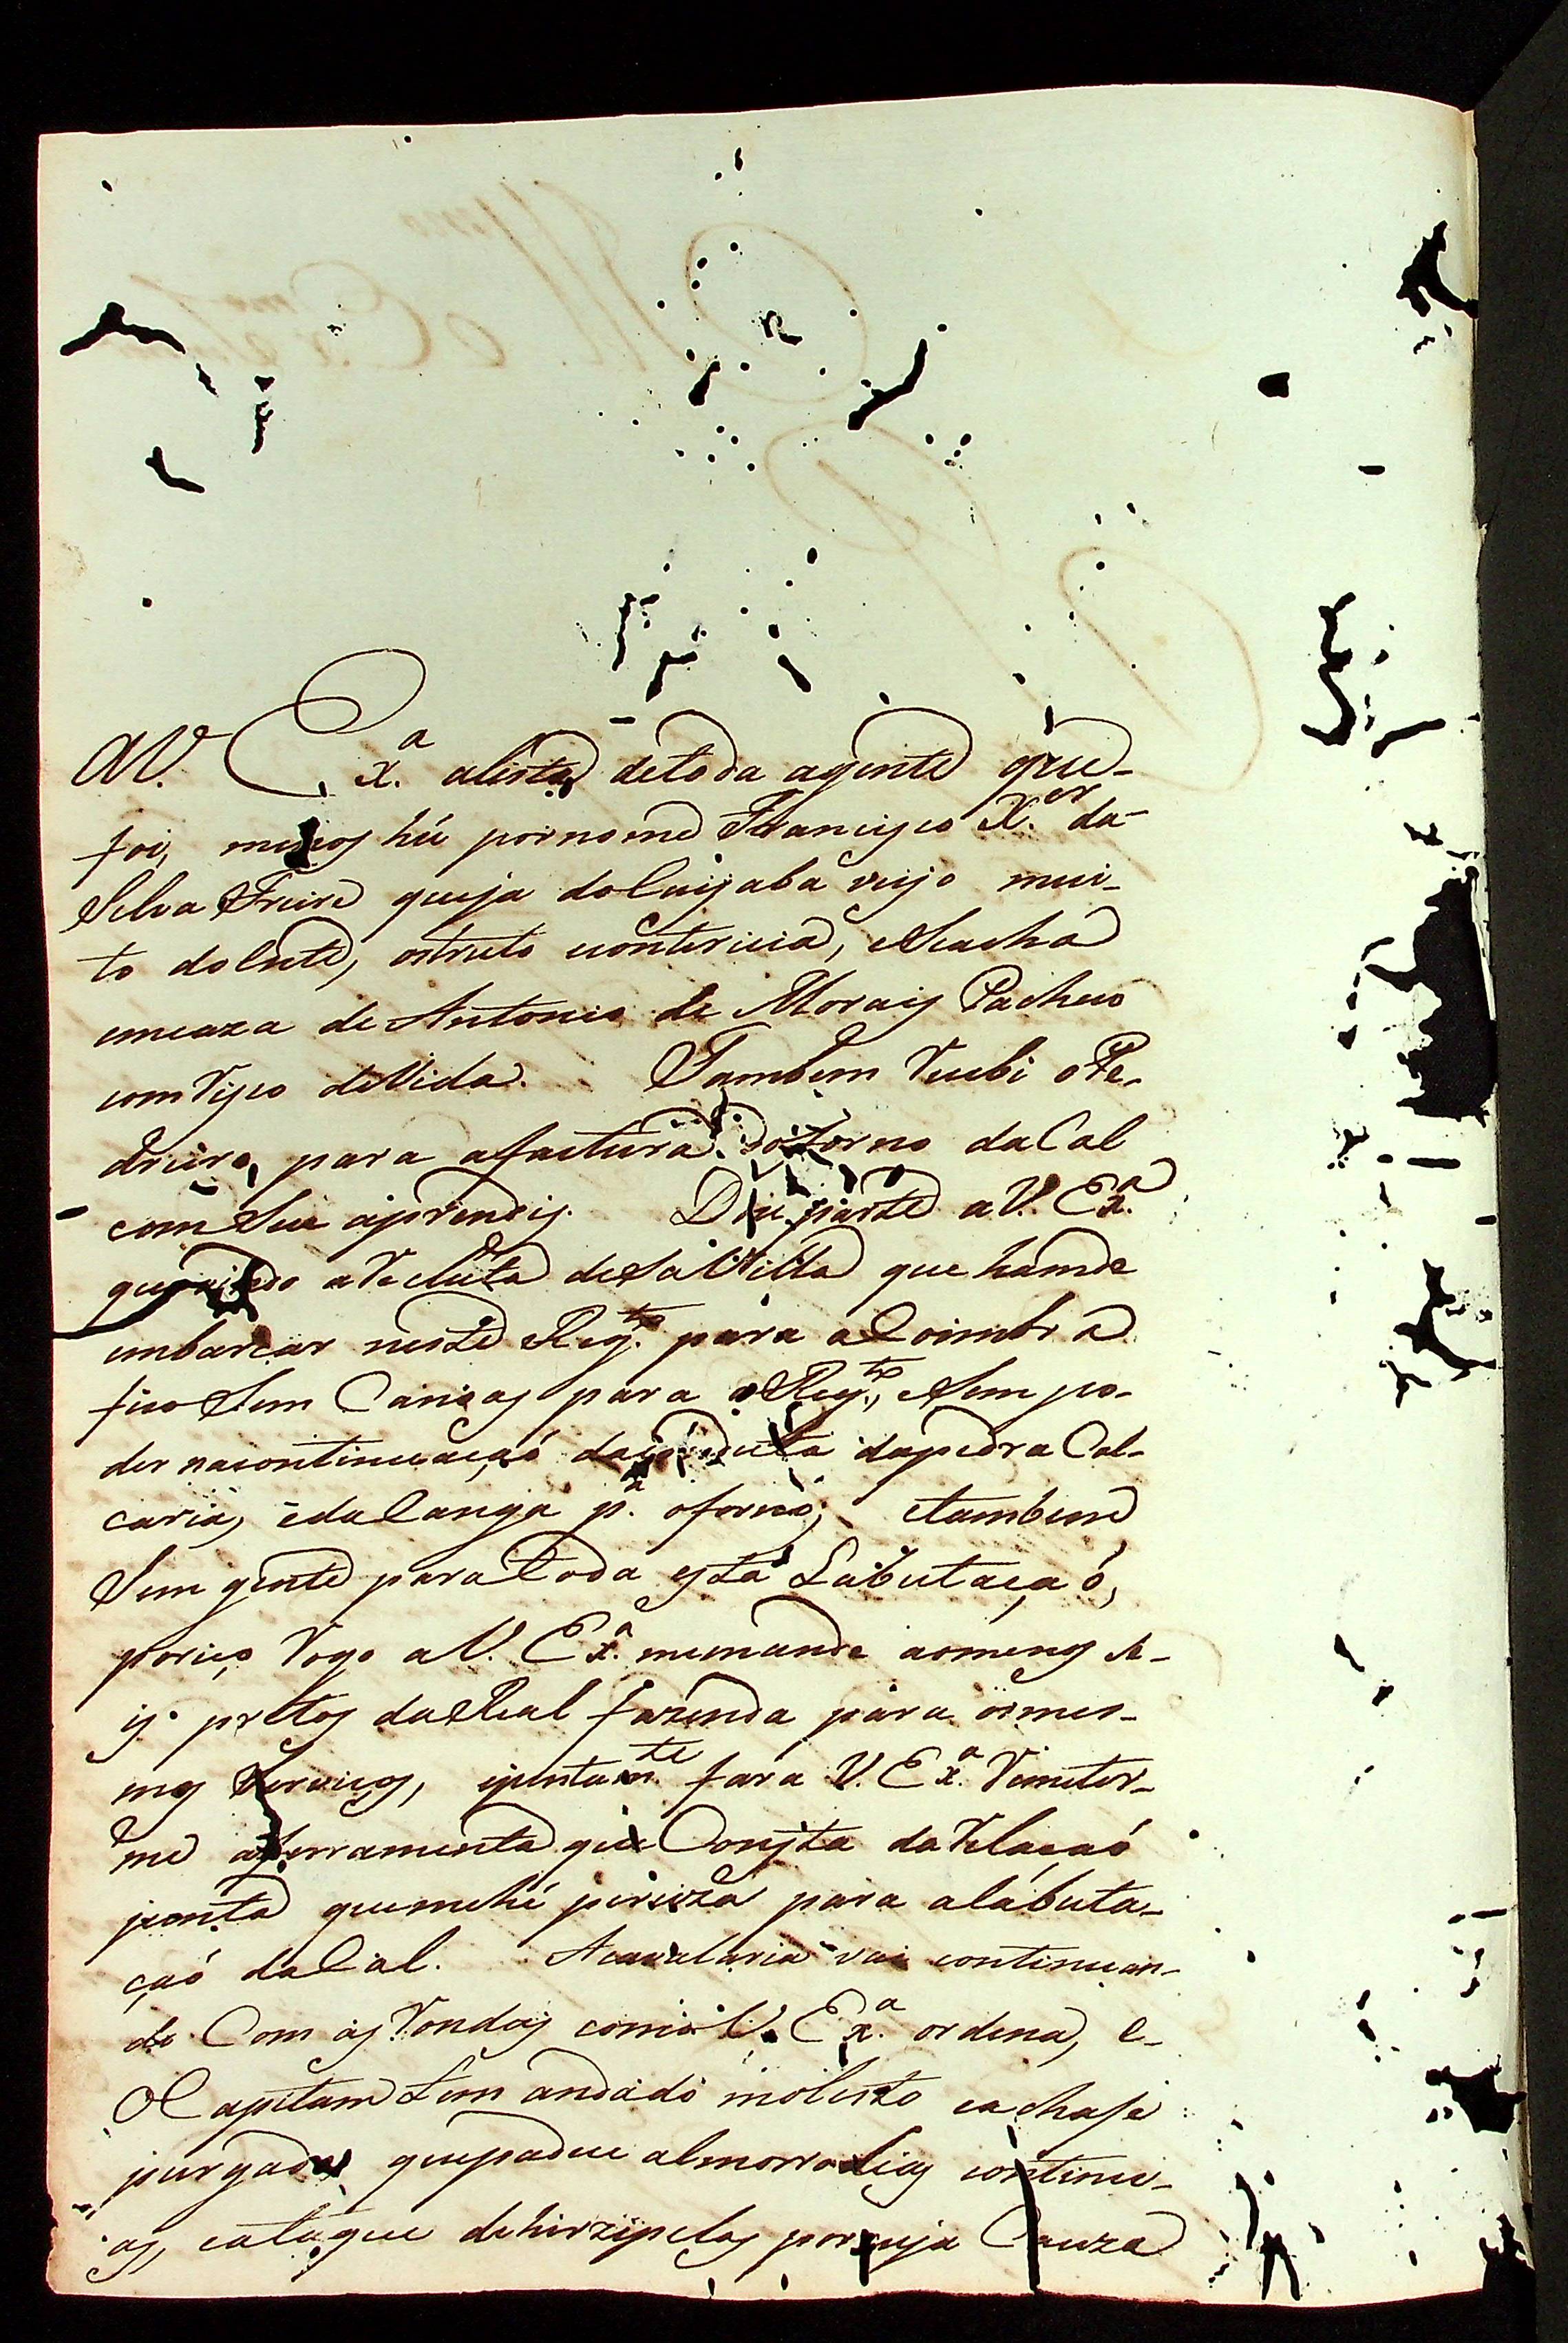 AV. Ex.ª alista detoda agente que-
foi, menos hú pornome Francisco X.er da-
Silva Freire queja doCuiaba veijo mui-
to doente, eSeacha
emcaza de Antonio de Morais Pacheco
com Risco deVida. Tambem Recebi oPe-
dreiro, para afactura doforno daCal
com Seu aprendis. Dou parte aV. Ex.ª
que aRecluta desaVilla que hamde
embarcar neste Reg.to para aCoimbra
fico Sem Canoas para o Reg.to, eSem po-
der nacontinuaçaó da dapedra Cal-
caria, edaCanga p.ª oforno; etambem
Sem gente paraToda esta Labutaçaó,
poriço Rogo aV. Ex.ª memande aomenos se-
is pretos daReal fazenda para osmes-
mos Serviços, ejuntam.te fara V. Ex.ª Remeter-
me aferramenta que Consta daRelaçaó
junta quemehé perciza para alabuta-
çaó daCal. Acavalaria vai continuan-
do Com as Rondas como V. Ex.ª ordena, e-
OCapitam tem andado molesto eachase
purgado, quepadece almorroidias continu-
as, eataque dehirzipelas porcuja Cauza